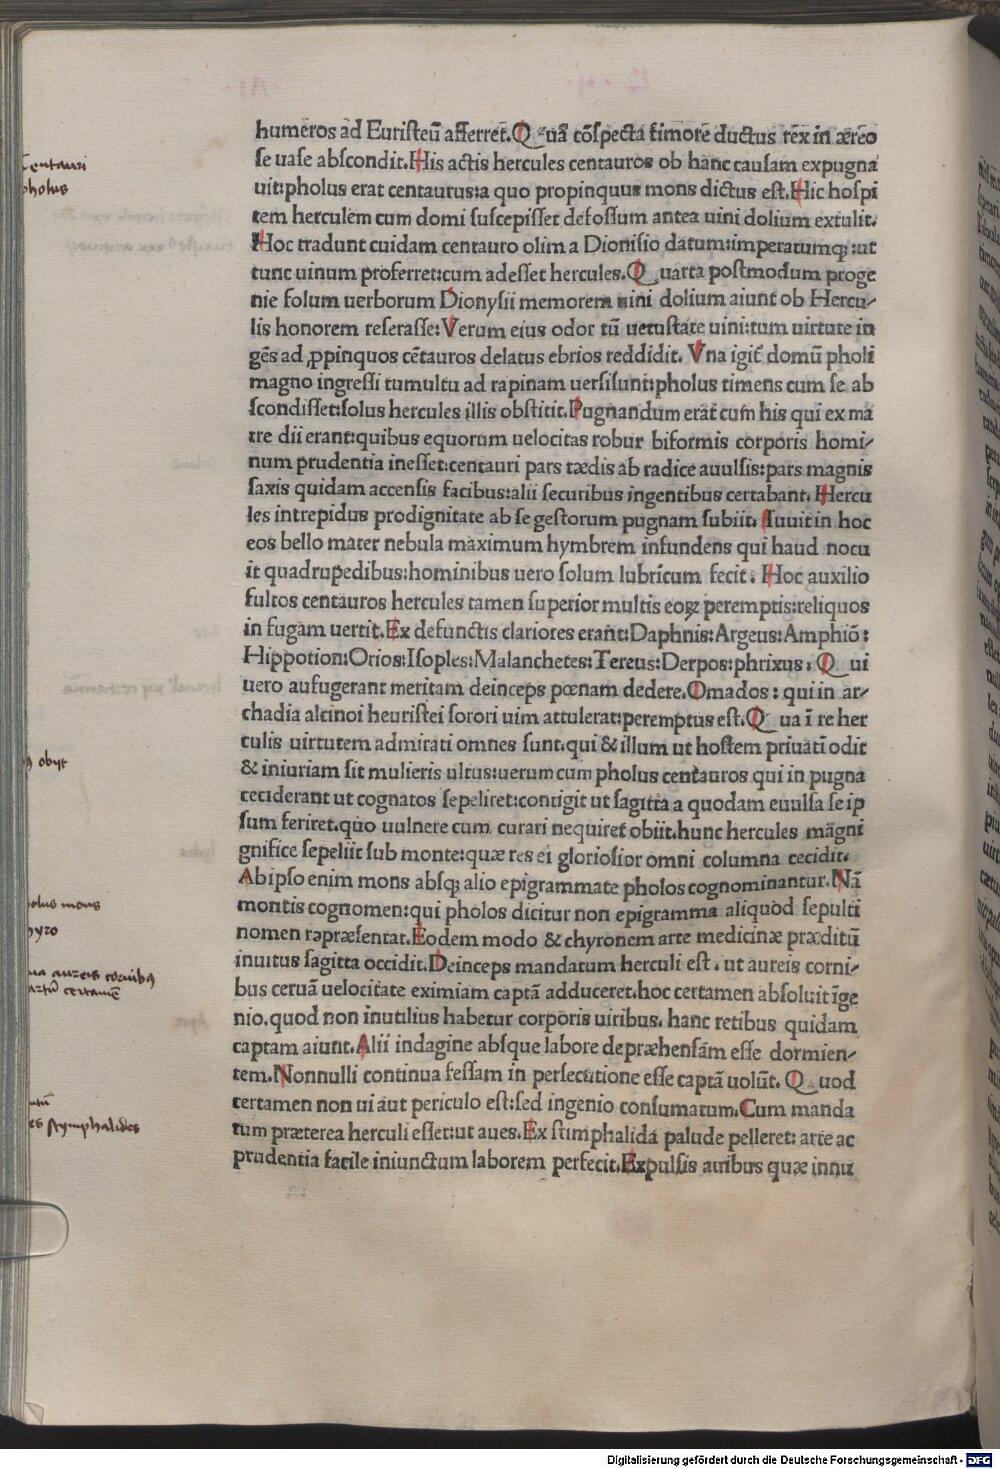 humeros ad Euristeū afferret. Quā cōspecta timore ductus rex in æreo
se uase abscondit. His actis hercules centauros ob hanc causam expugna
uit: pholus erat centaurus: a quo propinquus mons dictus est. Hic hospi
tem herculem cum domi suscepisset defossum antea uini dolium extulit.
Hoc tradunt cuidam centauro olim a Dionisio datum: imperatumqꝫ: ut
tunc uinum proferret: cum adesset hercules. Quarta postmodum proge
nie solum uerborum Dionysii memorem uini dolium aiunt ob Hercu-
lis honorem reserasse: Verum eius odor tū uetustate uini: tum uirtute in
gēs ad ꝓpinquos cētauros delatus ebrios reddidit. Vna igit̄ domū pholi
magno ingressi tumultu ad rapinam uersi sunt: pholus timens cum se ab
scondisset: solus hercules illis obstitit. Pugnandum erat cum his qui ex ma
tre dii erant: quibus equorum uelocitas robur biformis corporis homi-
num prudentia inesset: centauri pars tædis ab radice auulsis: pars magnis
saxis quidam accensis facibus: alii securibus ingentibus certabant. Hercu
les intrepidus pro dignitate ab se gestorum pugnam subiit. Iuuit in hoc
eos bello mater nebula maximum hymbrem infundens qui haud nocu
it quadrupedibus: hominibus uero solum lubricum fecit. Hoc auxilio
fultos centauros hercules tamen superior multis eoꝝ peremptis: reliquos
in fugam uertit. Ex defunctis clariores erant: Daphnis: Argeus: Amphiō:
Hippotion: Orios: Isoples: Malanchetes: Tereus: Derpos: phrixus. Qui
uero aufugerant meritam deinceps pœnam dedere. Omados: qui in ar-
chadia alcinoi heuristei sorori uim attulerat: peremptus est. Qua ī re her
culis uirtutem admirati omnes sunt. qui & illum ut hostem priuatī odit
& iniuriam sit mulieris ultus: uerum cum pholus centauros qui in pugna
ceciderant ut cognatos sepeliret: contigit ut sagitta a quodam euulsa se ip
sum feriret. quo uulnere cum curari nequiret obiit. hunc hercules magni
gnifice sepeliit sub monte: quæ res ei gloriosior omni columna cecidit.
Ab ipso enim mons absqꝫ alio epigrammate pholos cognominantur. Nā
montis cognomen: qui pholos dicitur non epigramma aliquod sepulti
nomen repræsentat. Eodem modo & chyronem arte medicinæ præditū
inuitus sagitta occidit. Deinceps mandatum herculi est. ut aureis corni-
bus ceruā uelocitate eximiam captā adduceret. hoc certamen absoluit īge
nio. quod non inutilius habetur corporis uiribus. hanc retibus quidam
captam aiunt. Alii indagine absque labore depræhensam esse dormien-
tem. Nonnulli continua fessam in persecutione esse captā uolūt. Quod
certamen non ui aut periculo est: sed ingenio consumatum. Cum manda
tum præterea herculi esset: ut aues. Ex stimphalida palude pelleret: arte ac
prudentia facile iniunctum laborem perfecit. Expulsis auibus quæ innu
Centauri
pholus
obijt
olus mons
hyro
aureis cornibꝰ
certamē
es stymphalides
Digitalisierung gefördert durch die Deutsche Forschungsgemeinschaft - DFG